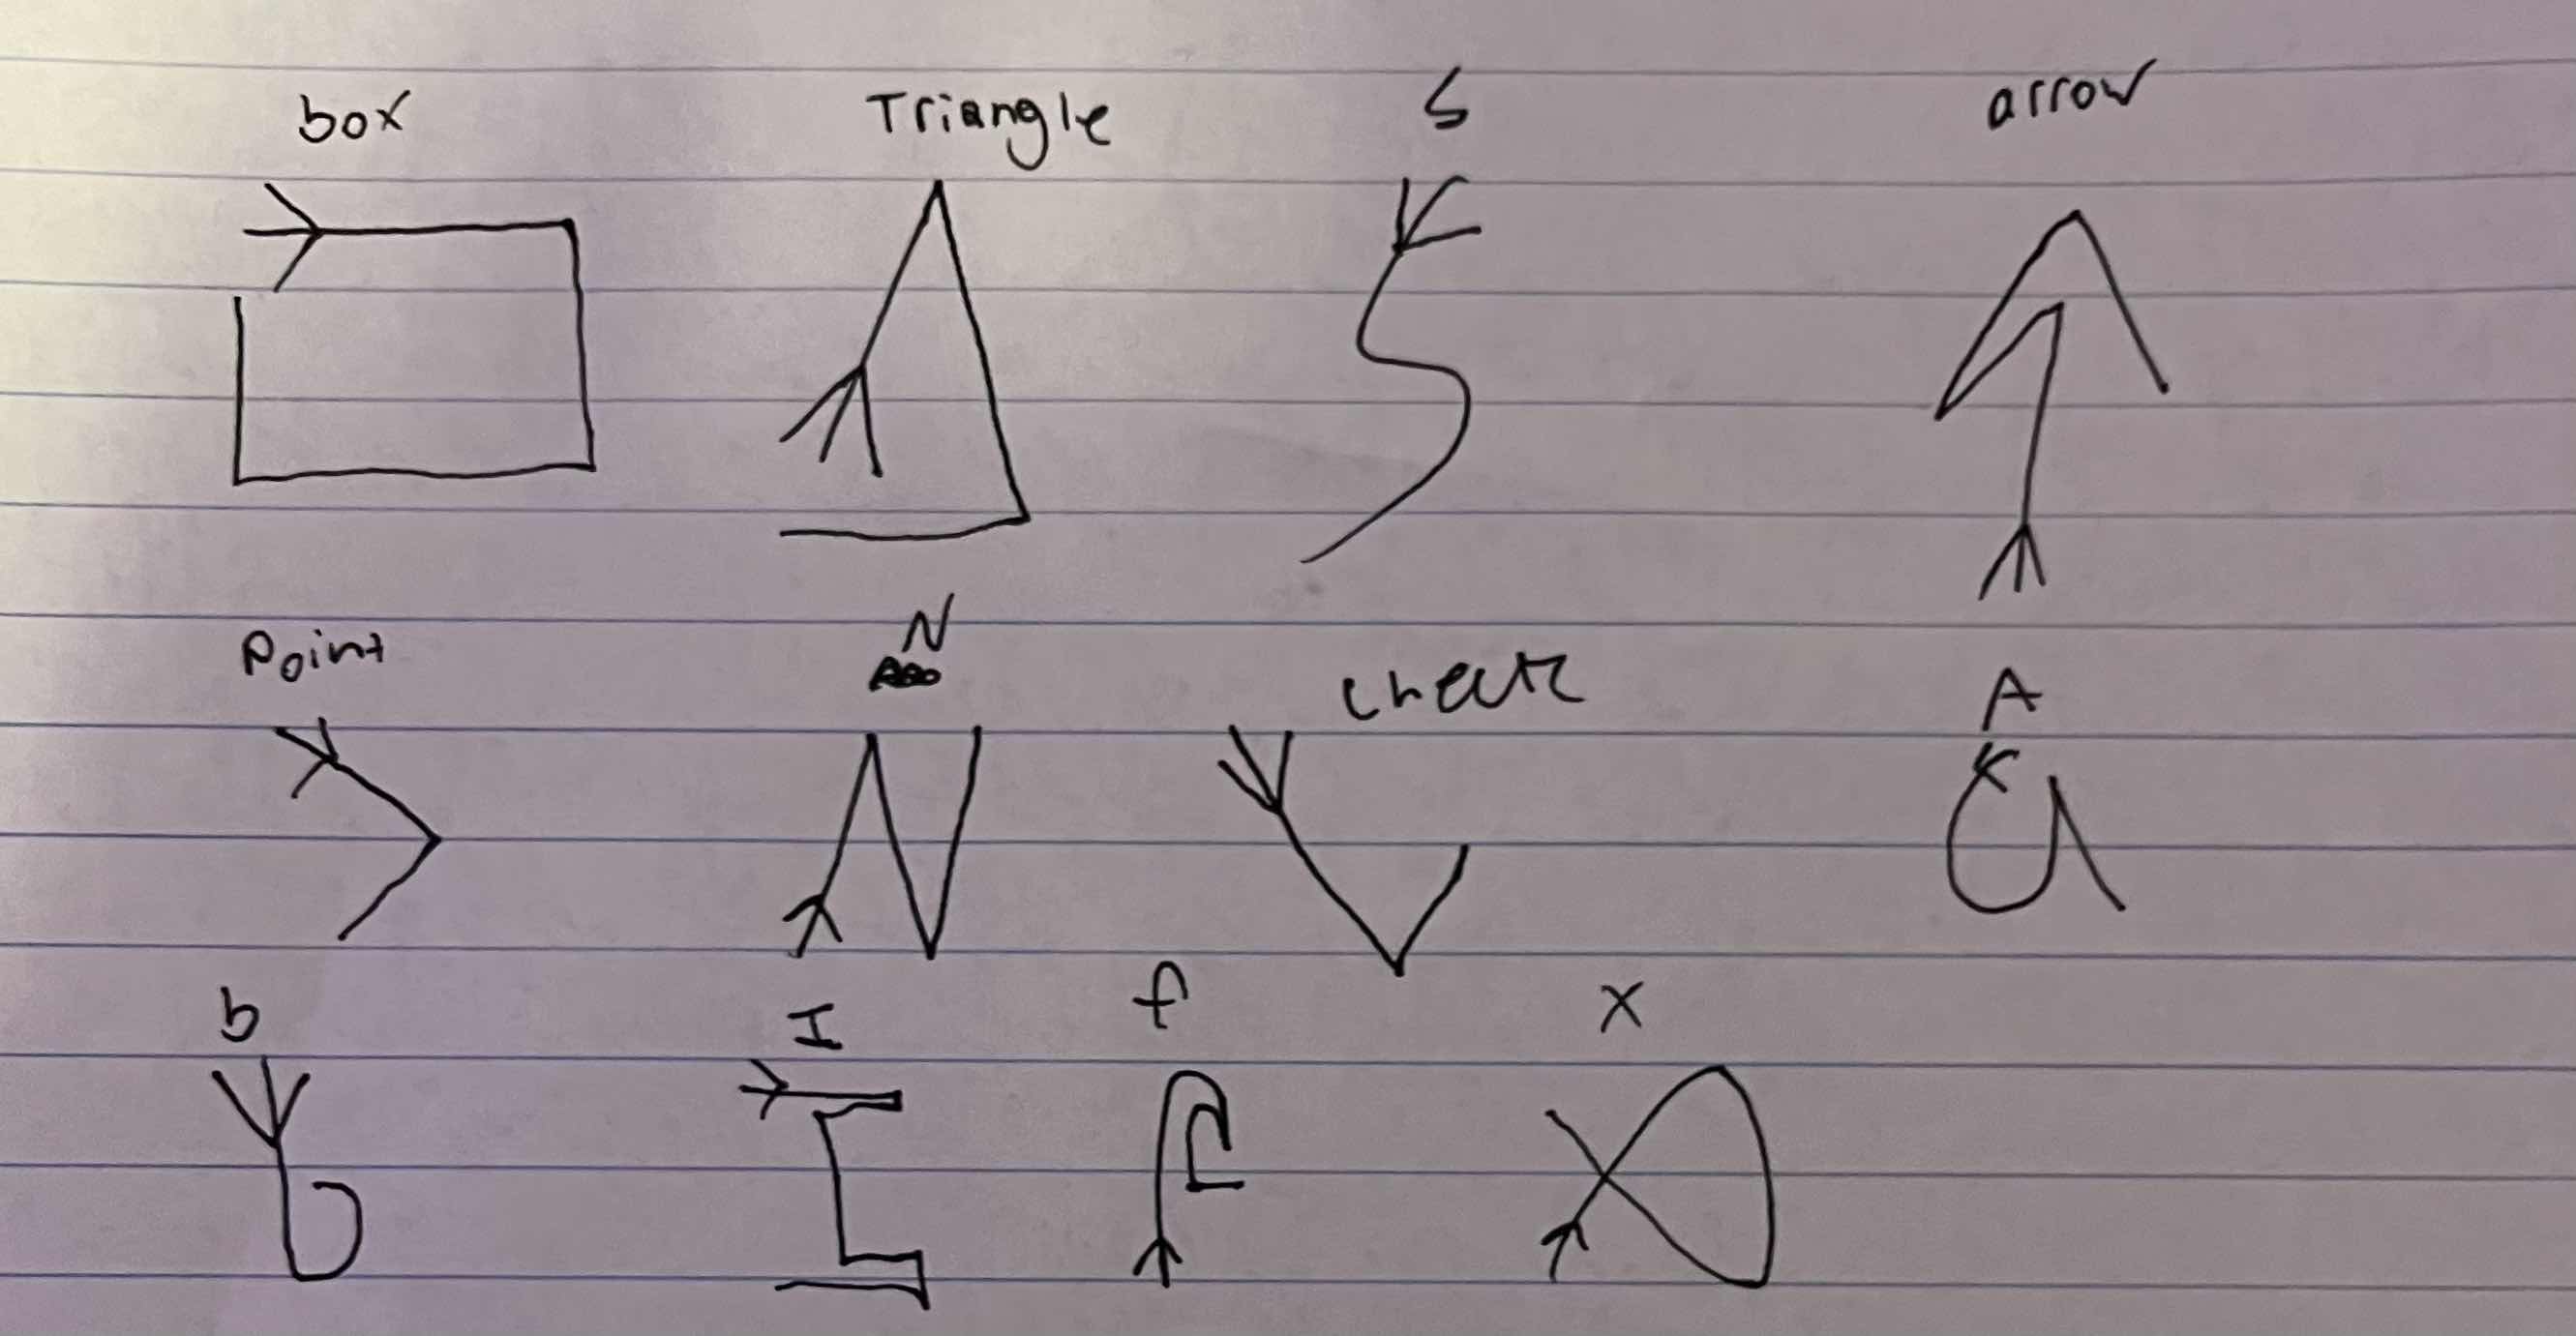 box Triangle S arrow
Point N check A
b I f x